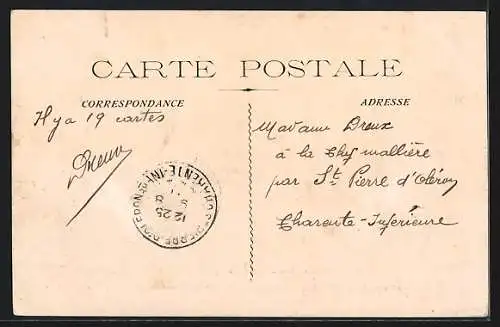 CARTE POSTALE
CORRESPONDANCE
Il y a 19 cartes
Dreux
12-25
ADRESSE
Madame Dreux
à la Chef mallière
par St Pierre d'Oléron
Charente-Inférieure